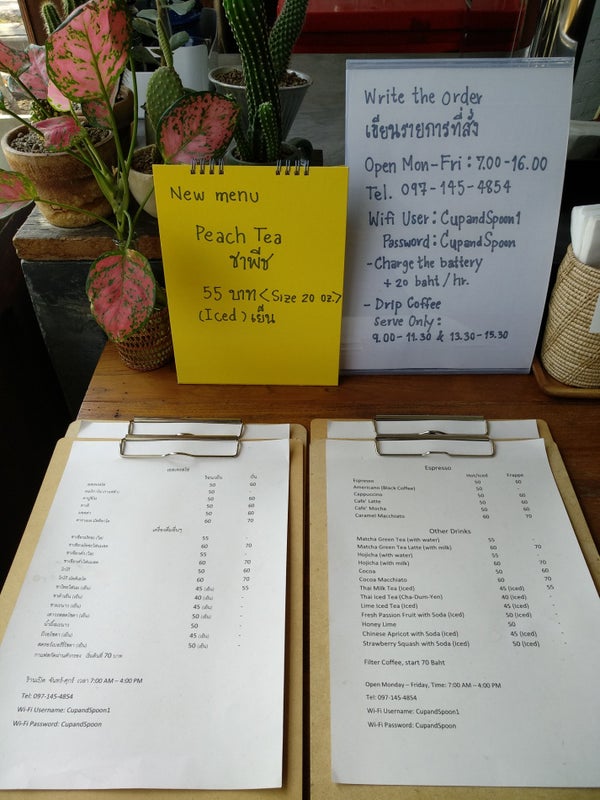 New menu
Peach Tea
ชาพีช
55 บาท <Size 20 oz.>
(Iced) เย็น
Write the order
เขียนรายการที่สั่ง
Open Mon-Fri : 7.00 -16.00
Tel. 097-145-4854
Wifi User : CupandSpoon1
Password : CupandSpoon
- Charge the battery
+ 20 baht / hr.
- Drip Coffee
Serve Only :
9.00 - 11.30 & 13.30 - 15.30
ร้อน/เย็น ปั่น
50 60
50 -
50 60
50 60
50 60
60 70
เครื่องดื่มอื่นๆ
55 -
60 70
55 -
60 70
50 60
60 70
45 (เย็น) 55
40 (เย็น) -
45 (เย็น) -
50 (เย็น) -
50 -
45 (เย็น) -
50 (เย็น) -
ร้านเปิด จันทร์-ศุกร์ เวลา 7:00 AM – 4:00 PM
Tel: 097-145-4854
Wi-Fi Username: CupandSpoon1
Wi-Fi Password: CupandSpoon
Espresso Hot/Iced Frappe
Espresso 50 60
Americano (Black Coffee) 50 -
Cappuccino 50 60
Cafe' Latte 50 60
Cafe' Mocha 50 60
Caramel Macchiato 60 70
Other Drinks
Matcha Green Tea (with water) 55 -
Matcha Green Tea Latte (with milk) 60 70
Hojicha (with water) 55 -
Hojicha (with milk) 60 70
Cocoa 50 60
Cocoa Macchiato 60 70
Thai Milk Tea (Iced) 45 (Iced) 55
Thai Iced Tea (Cha-Dum-Yen) 40 (Iced) -
Lime Iced Tea (Iced) 45 (Iced) -
Fresh Passion Fruit with Soda (Iced) 50 (Iced) -
Honey Lime 50 -
Chinese Apricot with Soda (Iced) 45 (Iced) -
Strawberry Squash with Soda (Iced) 50 (Iced) -
Filter Coffee, start 70 Baht
Open Monday – Friday, Time: 7:00 AM – 4:00 PM
Tel: 097-145-4854
Wi-Fi Username: CupandSpoon1
Wi-Fi Password: CupandSpoon